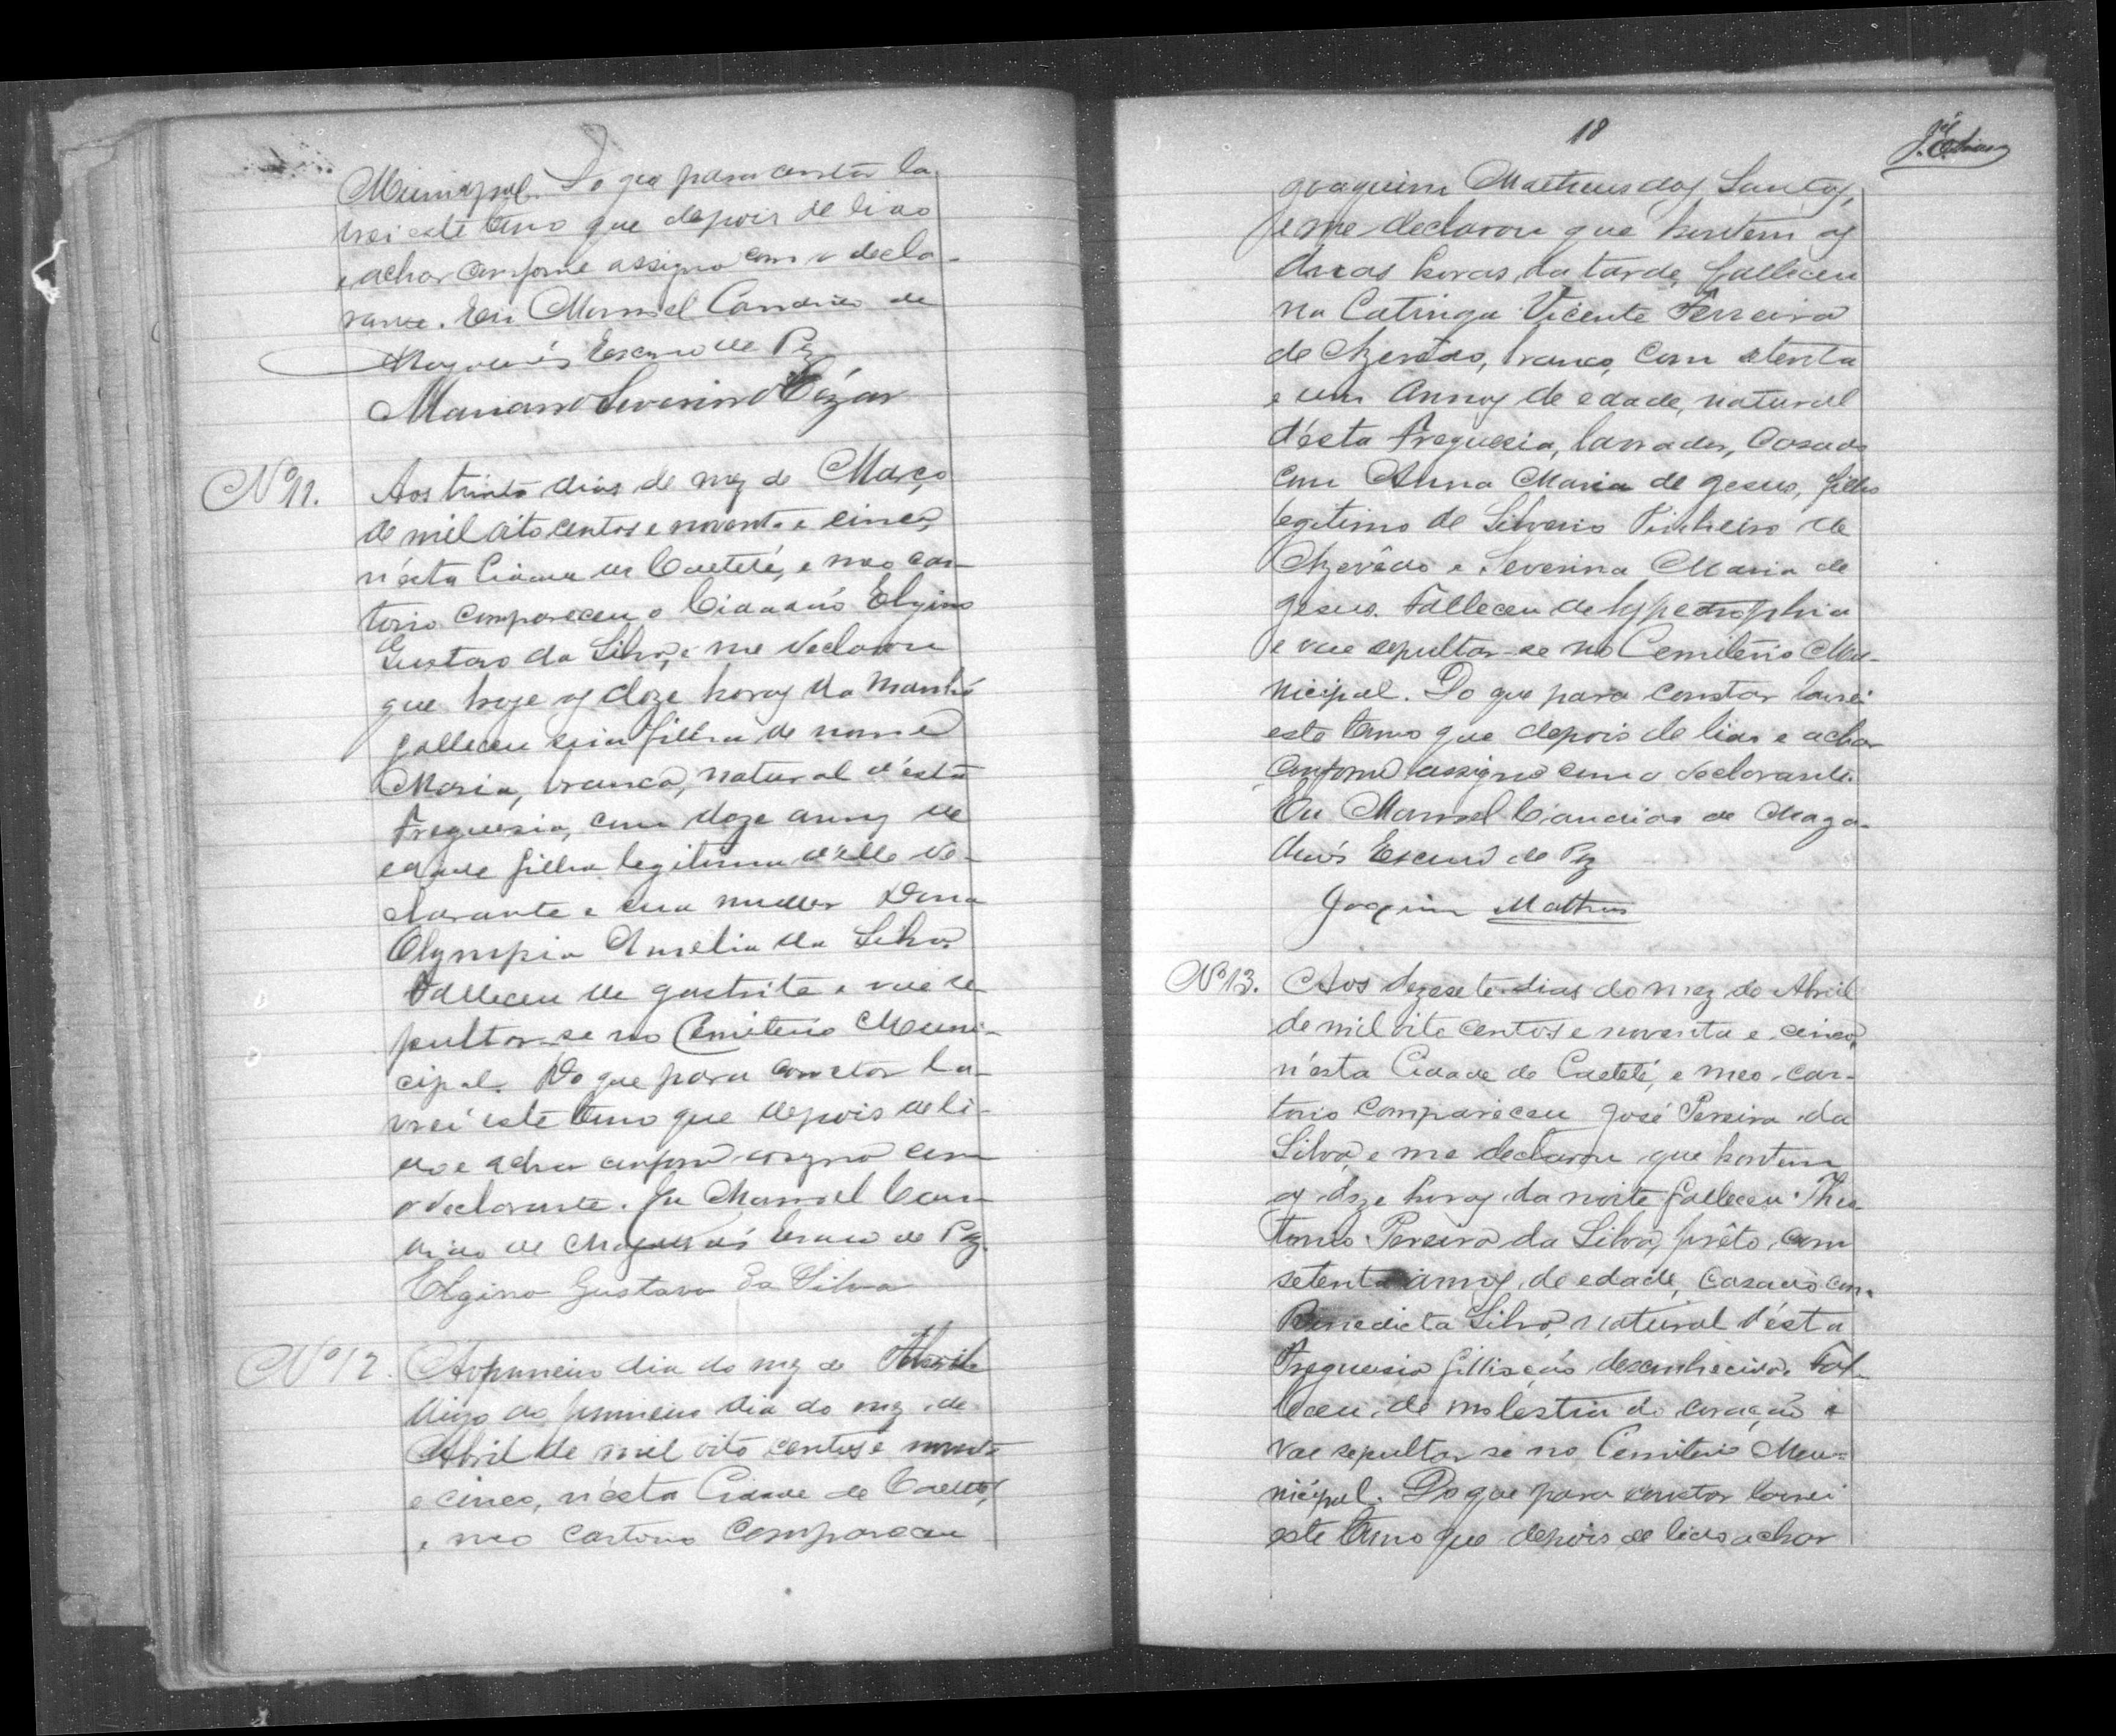 Municipal. Do que para constar la-
vrei este termo que depois de lido
e achar conforme assigno com o decla-
rante. Eu Manoel Candido de
Magalhães Escrivão de Paz
Mariano Severino Cézar
Nº 11.
Aos trinta dias do mez de Março
de mil oito centos e noventa e cinco,
n'ésta Cidade de Caeteté, e meo car-
torio compareceu o Cidadão Elgino
Gustavo da Silva, e me declarou
que hoje as doze horas da manhã
falleceu sua filha de nome
Maria, branca, natural d'ésta
Freguesia, com doze annos de
edade filha legitima d'elle de-
clarante e sua mulher Dona
Olympia Amelia da Silva.
Falleceu de gastrite e vae se
pultar-se no Cemiterio Muni-
cipal. Do que para constar la-
vrei este termo que depois de li-
do e achar conforme assigno com
o declarante. Eu Manoel Can-
dido de Magalhães Escrivão de Paz.
Elgino Gustavo da Silva
Nº 12.
Ao primeiro dia do mez de Abril
digo ao primeiro dia do mez de
Abril de mil oito centos e noventa
e cinco, n'ésta Cidade de Caeteté,
e meo cartorio compareceu
18
Joaquim Matheus dos Santos,
e me declarou que hontem as
duas horas da tarde, falleceu
na Catinga Vicente Ferreira
de Azevêdo, branco, com setenta
e um annos de edade, natural
d'ésta Freguesia, lavrador, Casado
com Anna Maria de Jesus, filho
legitimo de Silverio Pinheiro de
Azevêdo e Severina Maria de
Jesus. Falleceu de hypedrophia
e vae sepultar-se no Cemiterio Mu-
nicipal. Do que para constar lavrei
este termo que depois de lido e achar
conforme assigno com o declarante.
Eu Manoel Candido de Maga-
lhães Escrivão de Paz
Joaquim Matheus
Nº 13.
Aos dezesete dias do mez de Abril
de mil oito centos e noventa e cinco,
n'ésta Cidade de Caeteté, e meo car-
torio compareceu José Pereira da
Silva, e me declarou que hontem
as doze horas da noite falleceu Theo-
tonio Pereira da Silva, prêto, com
setenta annos de edade, casado com
Benedicta Silva, natural d'ésta
Freguesia filliação desconhecida. Fal-
leceu de molestia do coração e
vae sepultar se no Cemiterio Mu-
nicipal. Do que para constar lavrei
este termo que depois de lido achar